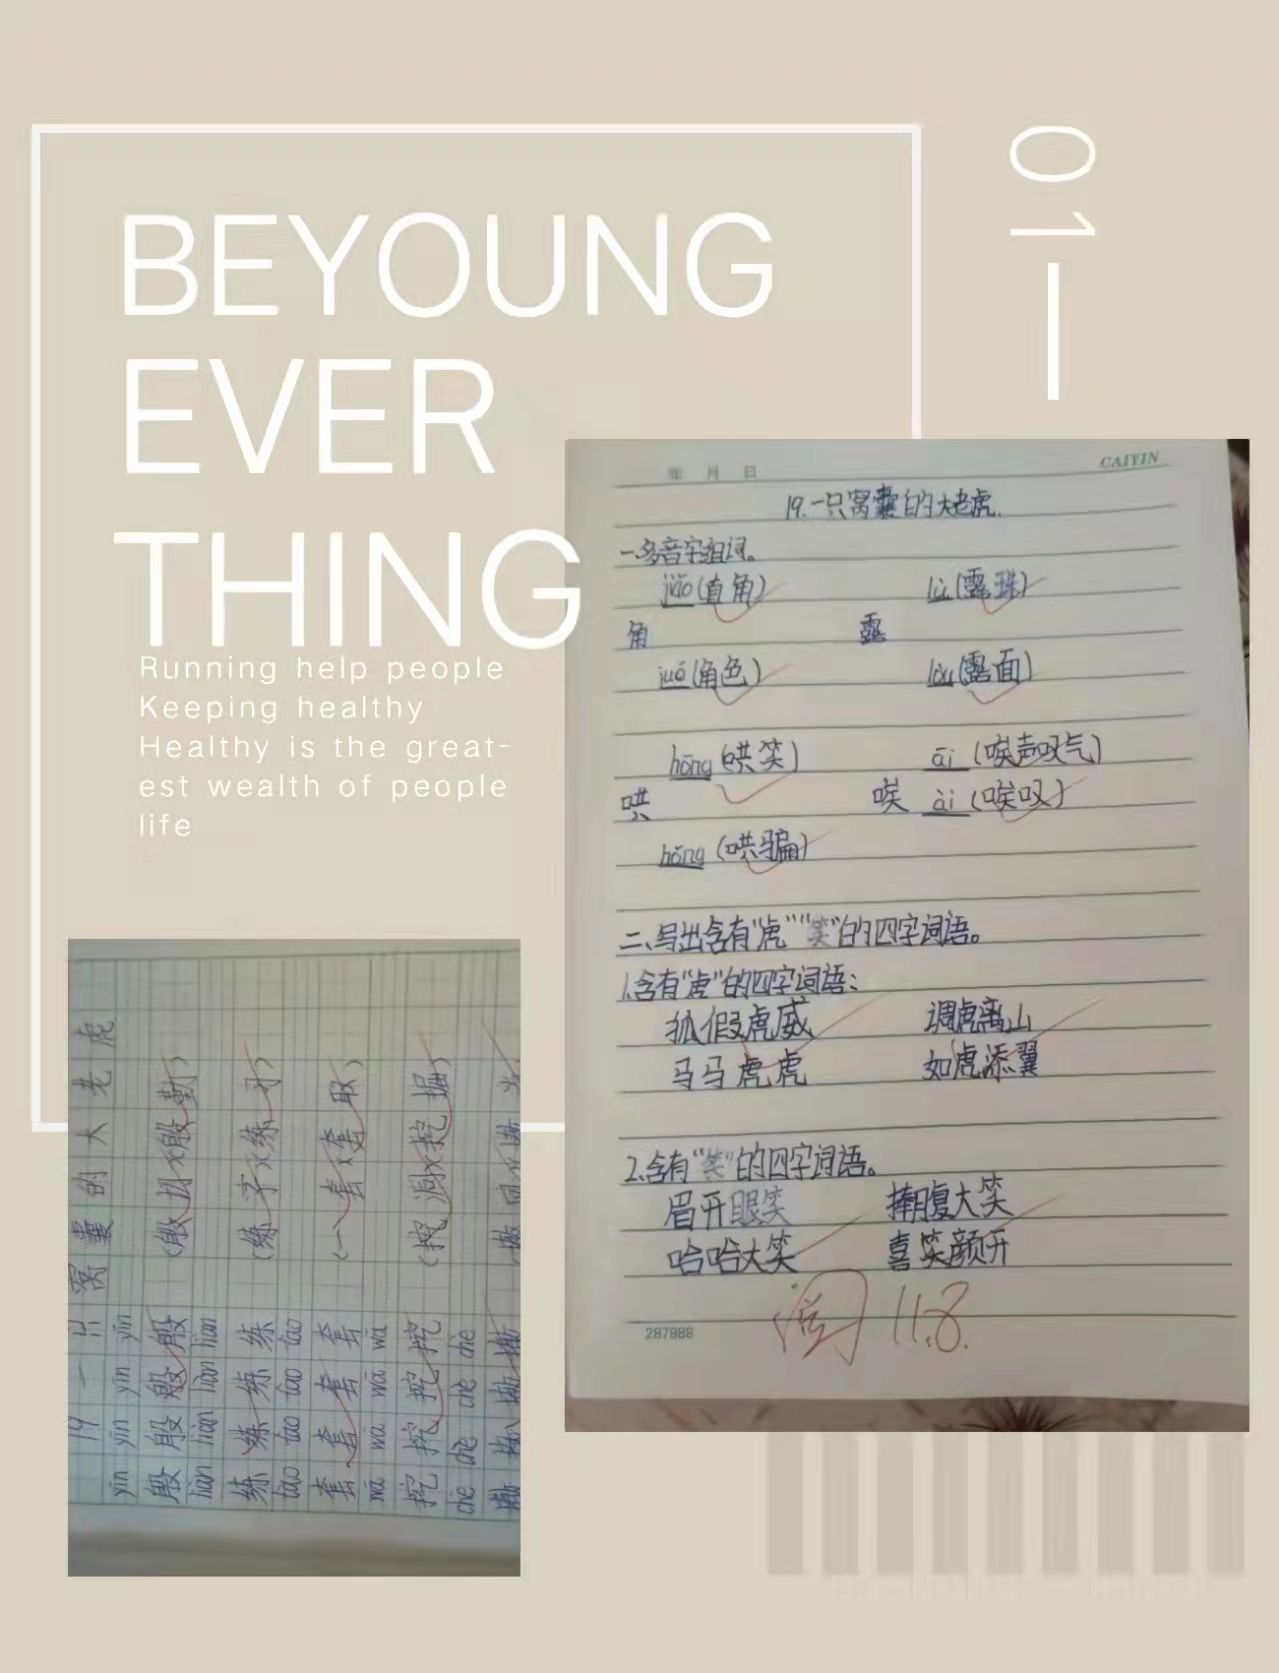 01
BEYOUNG
EVER
THING
Running help people
Keeping healthy
Healthy is the great-
est wealth of people
life
年 月 日
CAIYIN
19.一只窝囊的大老虎.
一、多音字组词。
jiǎo(直角) lù(露珠)
角 露
jué(角色) lòu(露面)
hōng(哄笑) āi(唉声叹气)
哄 唉 ài(唉叹)
hǒng(哄骗)
二、写出含有"虎""笑"的四字词语。
1.含有"虎"的四字词语:
狐假虎威 调虎离山
马马虎虎 如虎添翼
2.含有"笑"的四字词语。
眉开眼笑 捧腹大笑
哈哈大笑 喜笑颜开
阅 11.8.
287988
19 一只窝囊的大老虎
yīn yīn yīn yīn
殷殷殷殷(殷切)(殷勤)
liàn liàn liàn liàn
练练练练(练字)(练习)
tào tào tào tào
套套套套(一套)(套取)
wā wā wā wā
挖挖挖挖(挖洞)(挖掘)
chè chè chè chè
撤撤撤撤